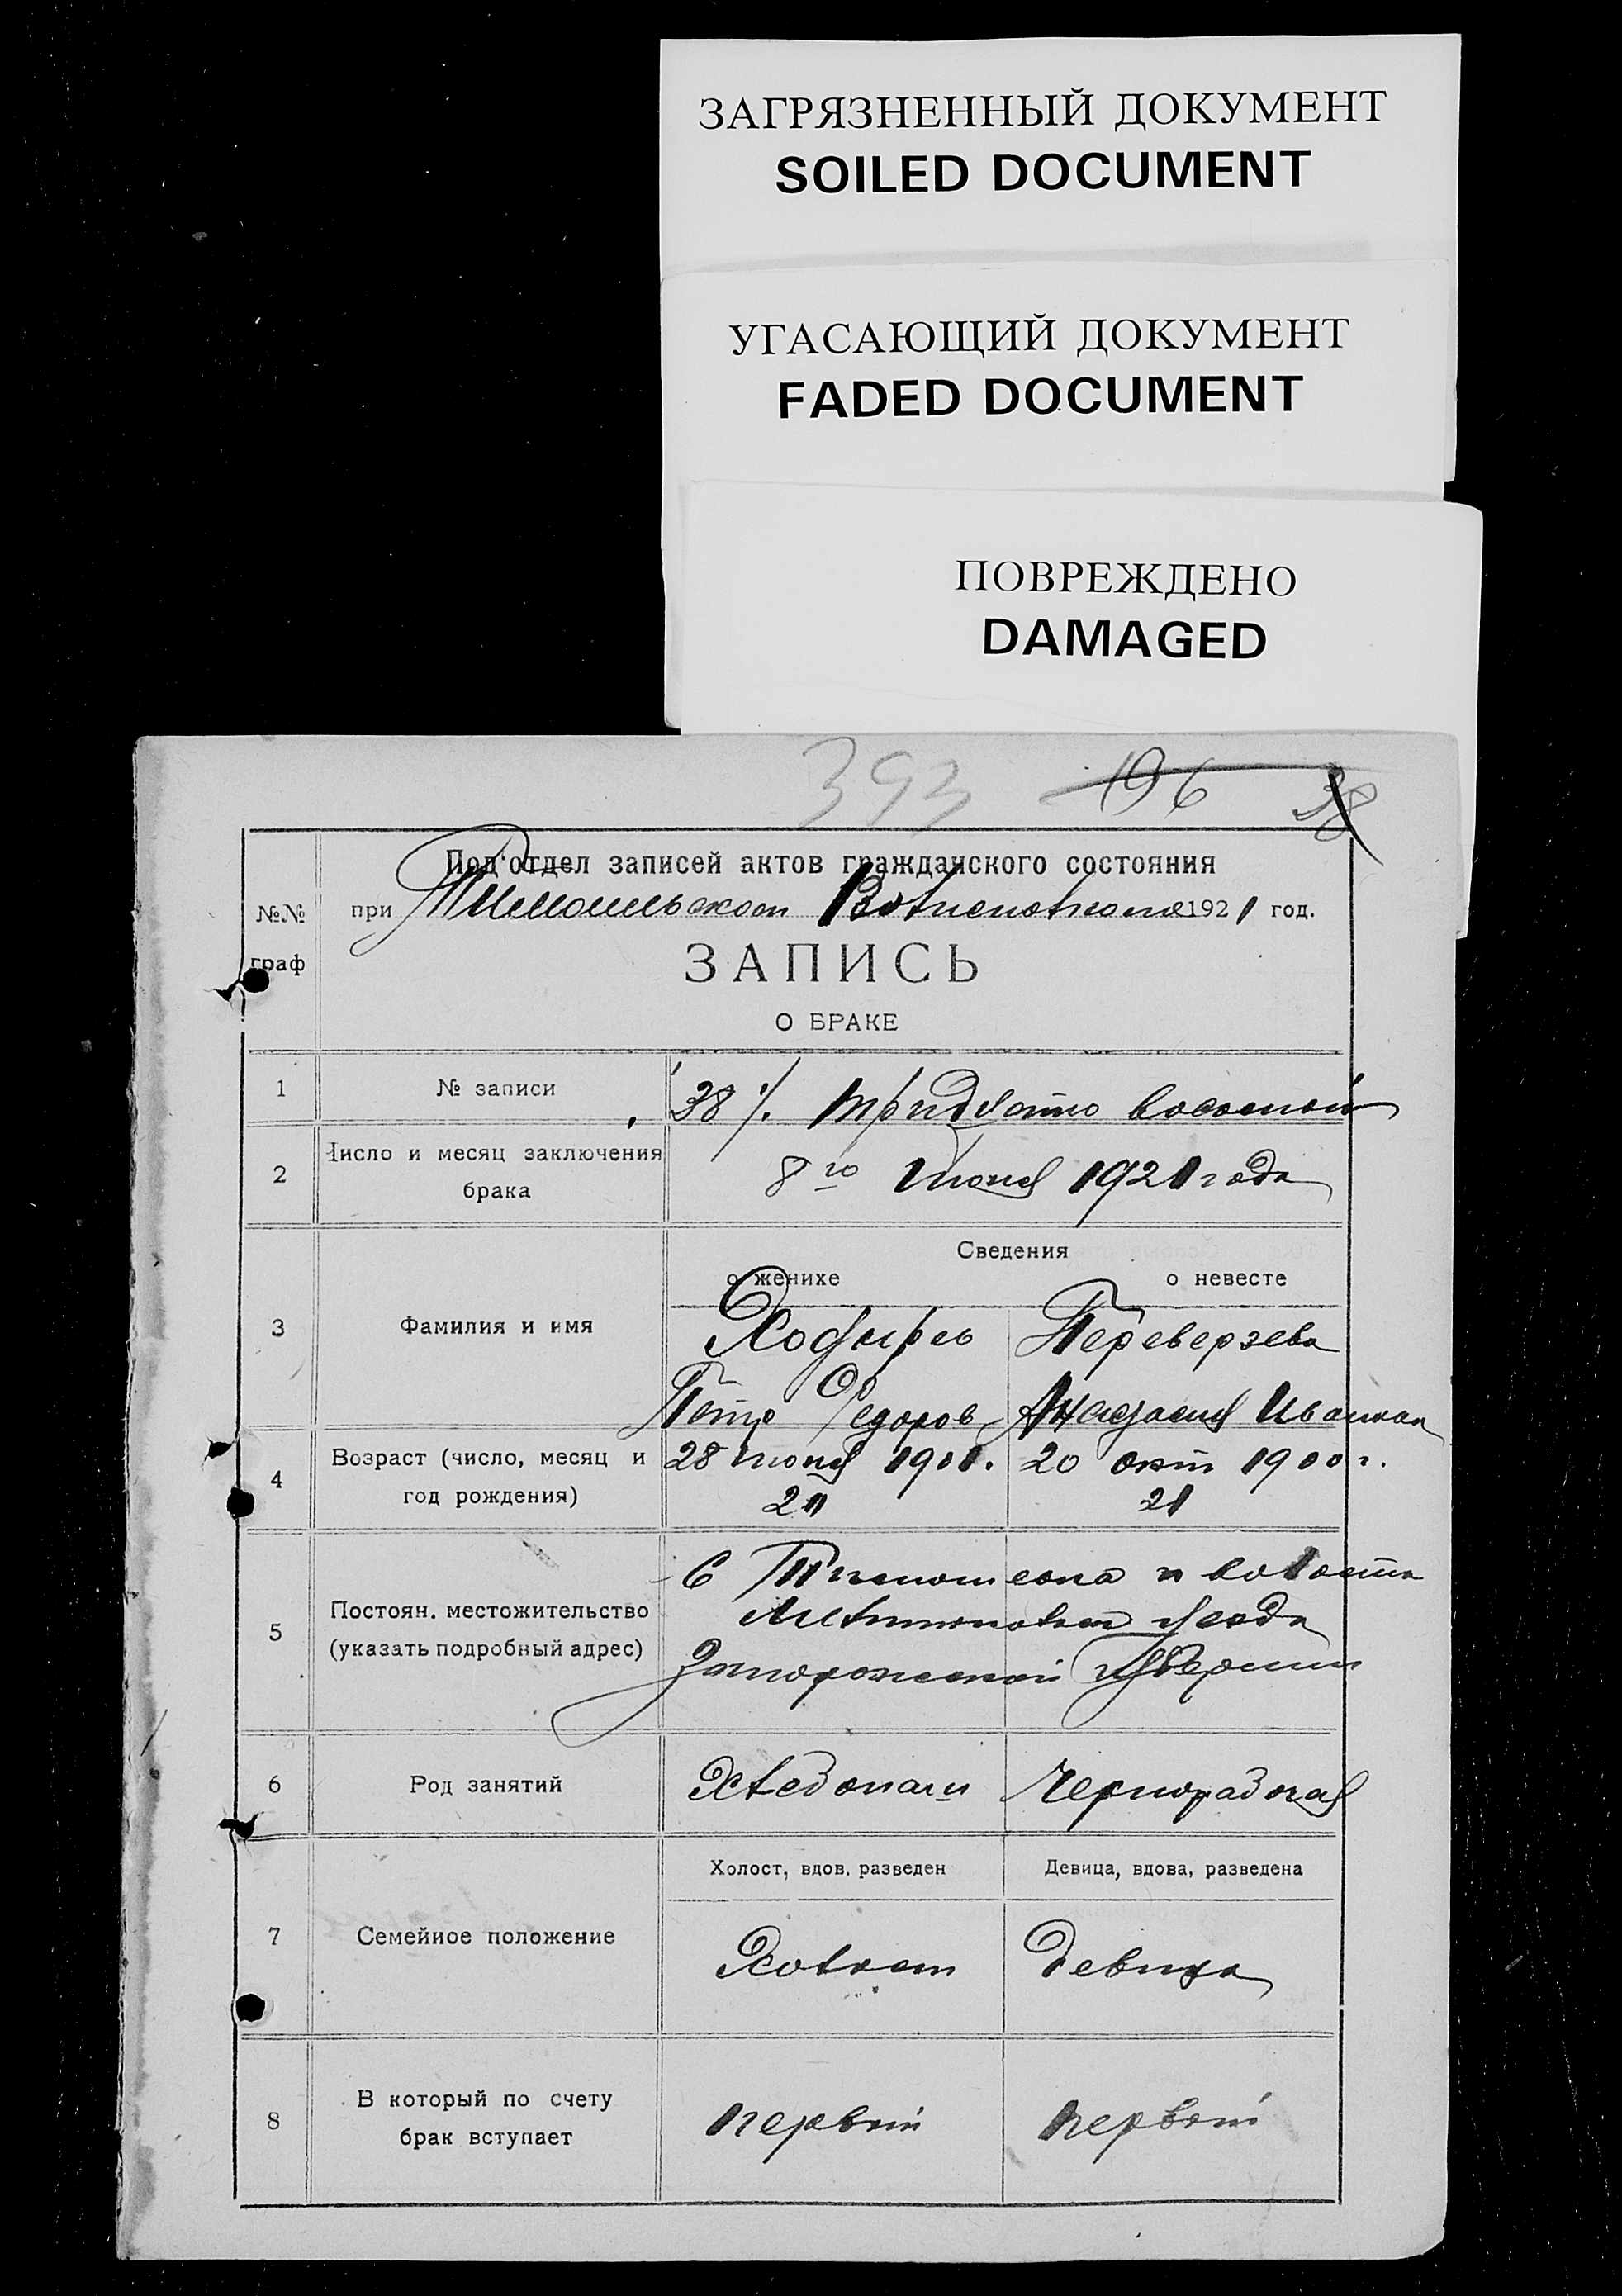 ЗАГРЯЗНЕННЫЙ ДОКУМЕНТ
SOILED DOCUMENT
УГАСАЮЩИЙ ДОКУМЕНТ
FADED DOCUMENT
ПОВРЕЖДЕНО
DAMAGED
393 196 38
Под'отдел записей актов гражданского состояния
№№ при 1921 год.
граф
ЗАПИСЬ
О БРАКЕ
1 № записи 38 тридцать восьмой
2 Число и месяц заключения
брака
8го 1921 года
Сведения
о женихе о невесте
3 Фамилия и имя
Переверзева
Петр Федоров
4 Возраст (число, месяц и
год рождения)
28 1901. 20 окт 1900 г.
21
5 Постоян. местожительство
(указать подробный адрес)
С
уезда
Запорожской губернии
6 Род занятий Хлебопаш Чернорабочая
Холост, вдов. разведен Девица, вдова, разведена
7 Семейное положение Холост девица
8 В который по счету
брак вступает
первый первый